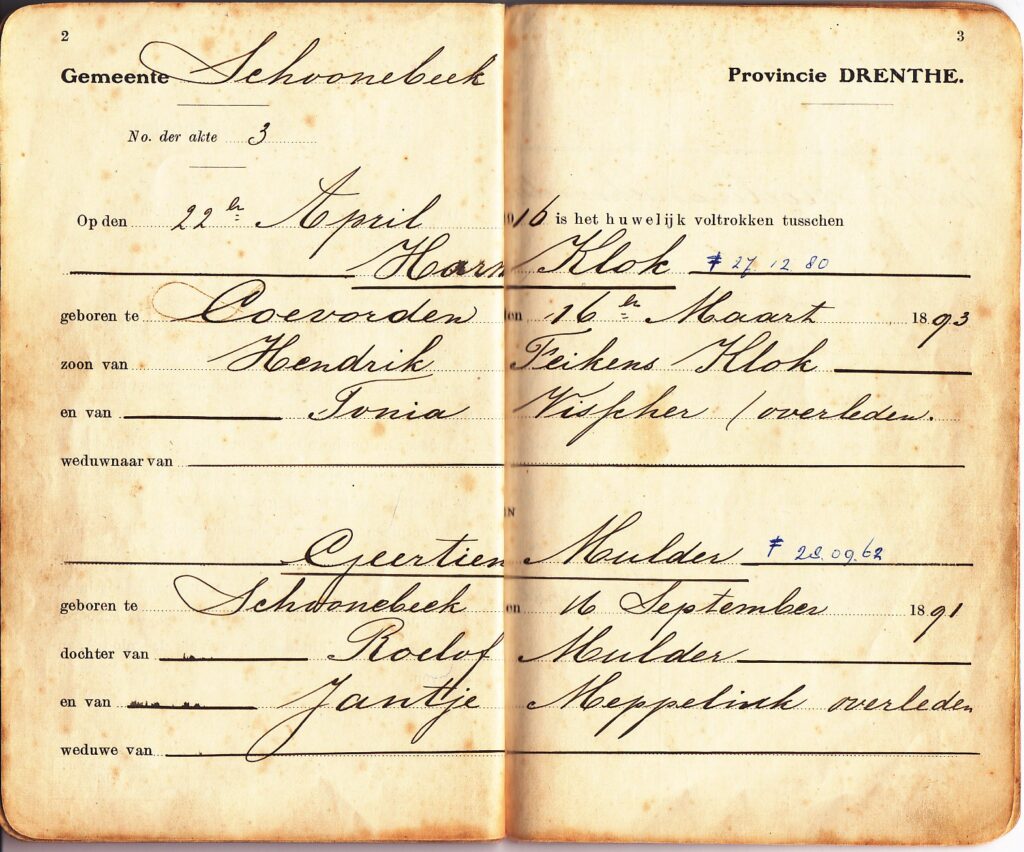 2
3
Gemeente Schoonebeek Provincie DRENTHE.
No. der akte 3
Op den 22en April 1916 is het huwelijk voltrokken tusschen
Harm Klok † 27.12.80
geboren te Coevorden den 16en Maart 1893
zoon van Hendrik Feikens Klok
en van Tonia Visscher (overleden.
weduwnaar van
EN
Geertien Mulder †
geboren te Schoonebeek den 16 September 1891
dochter van Roelof Mulder
en van Jantje Meppelink overleden
weduwe van